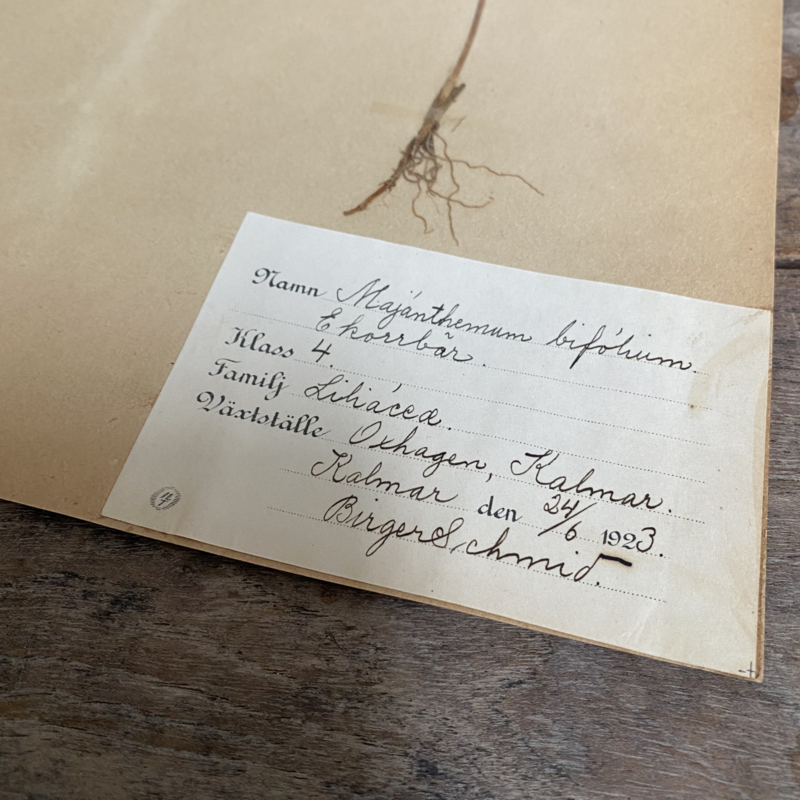 Namn Majánthemum bifólium.
Ekorrbär.
Klass 4.
Familj Liliáceæ.
Växtställe Oxhagen, Kalmar.
Kalmar den 24/6 1923.
Birger Schmid.
4